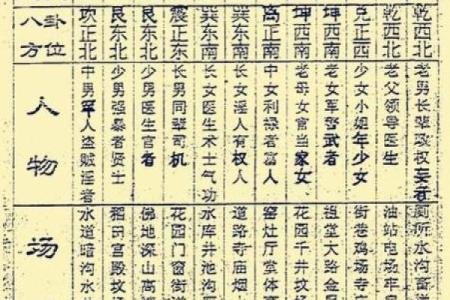 八卦方位
坎正北
艮东北
艮东北
震正东
巽东南
巽东南
离正南
坤西南
坤西南
兑正西
乾西北
乾西北
人物
中男罕人盗贼淫者
少男强暴者贤士
少男医生官者
长男同辈司机
长女医生术士气功
长女淫人有权人
中女利禄者富人
老母女官当家女
老女军警武者
少女小姐年少女
老父领导医生
老男长辈政权妄者
场
水道暗沟水
稻田宫殿坟
佛地深山高
花园门窗街道
水库井池沟
道路寺庙烟
窑灶厅堂体
花园千井坟
祖堂大路金
街巷鸡场寺
油站电场牢
厕所水沟畜